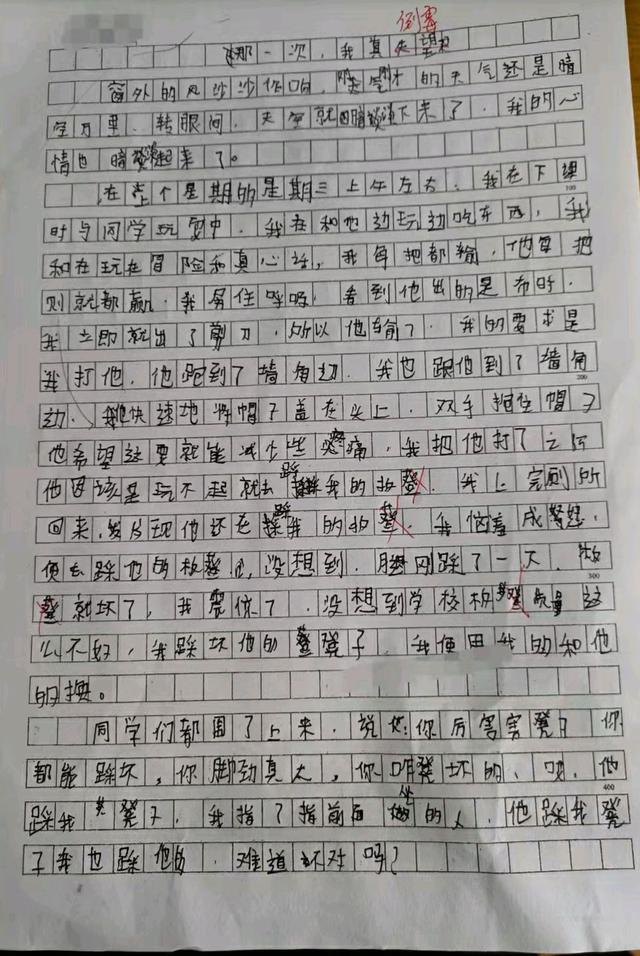 倒霉
那一次,我真失望
窗外的风沙沙作响,刚才的天气还是晴
空万里,转眼间,天空就暗淡下来了,我的心
情也暗起来了。
在上个星期的星期三上午左右,我在下课
时与同学玩耍中,我在和他边玩边吃东西,我
和在玩在冒险和真心话,我每把都输,他每把
则就都赢,我屏住呼吸,看到他出的是布时,
我立即就出了剪刀,所以他输了,我的要求是
我打他,他跑到了墙角边,我也跟他到了墙角
边,他快速地将帽子盖在头上,双手抱住帽子
他希望这要就能减少些疼痛,我把他打了之后
他因该是玩不起就去踩我的板凳,我上完厕所
回来,发现他还在踩我的板凳,我恼羞成怒,
便去踩他的板凳,没想到,脚刚踩了一下,板
凳就坏了,我震惊了,没想到学校板凳质量这
么不好,我踩坏他的凳子,我便用我的和他
的换。
同学们都围了上来,说:你厉害害凳日你
都能踩坏,你脚劲真大,你咋凳坏的,哎,他
踩我凳子,我指了指前面坐的人,他踩我凳
子我也踩他的,难道不对吗?